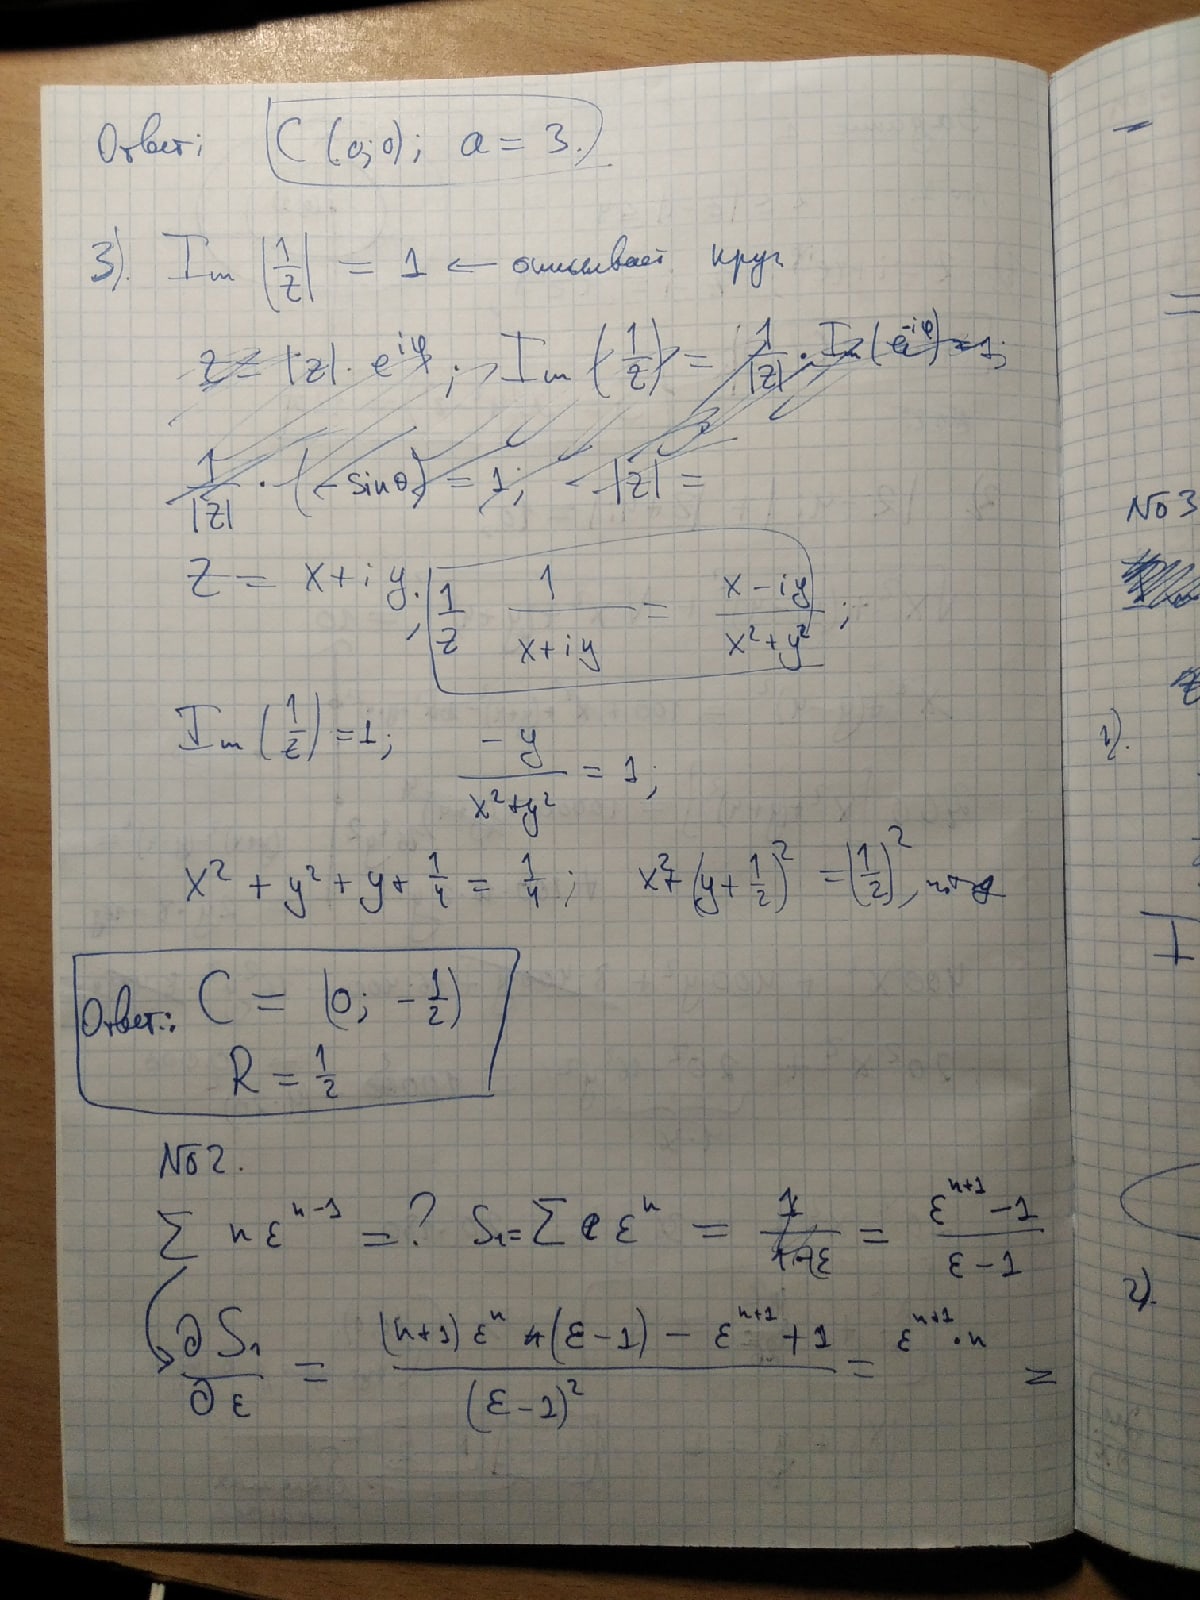 Ответ: C (0;0); a = 3.
3). Im (1/z) = 1 ← описывает круг
z = |z| · e^{iφ}; Im (1/z) = 1/|z| · Im (e^{-iφ}) = 1;
1/|z| · (-sinθ) = 1; |z| =
z = x+iy; 1/z 1/(x+iy) = (x-iy)/(x²+y²);
Im (1/z) = 1; -y/(x²+y²) = 1;
x² + y² + y + 1/4 = 1/4; x² + (y + 1/2)² = (1/2)²,
Ответ: C = (0; -1/2)
R = 1/2
№2.
∑ n ε^{n-1} = ? S₁ = ∑ ε^n = = (ε^{n+1} - 1)/(ε - 1)
∂S₁/∂ε = ((n+1) ε^n (ε-1) - ε^{n+1} + 1)/(ε-1)² = ε^{n+1} · n =
№3
1).
2).